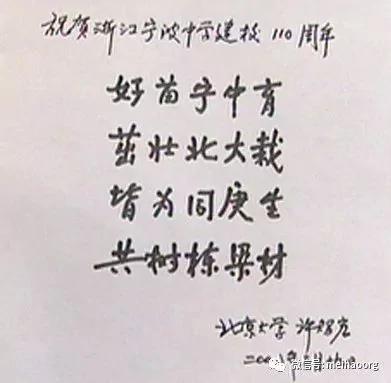 祝贺浙江宁波中学建校110周年
好苗宁中育
茁壮北大栽
皆为同庚生
共树栋梁材
北京大学 许智宏
二00
微信号: meihaoorg